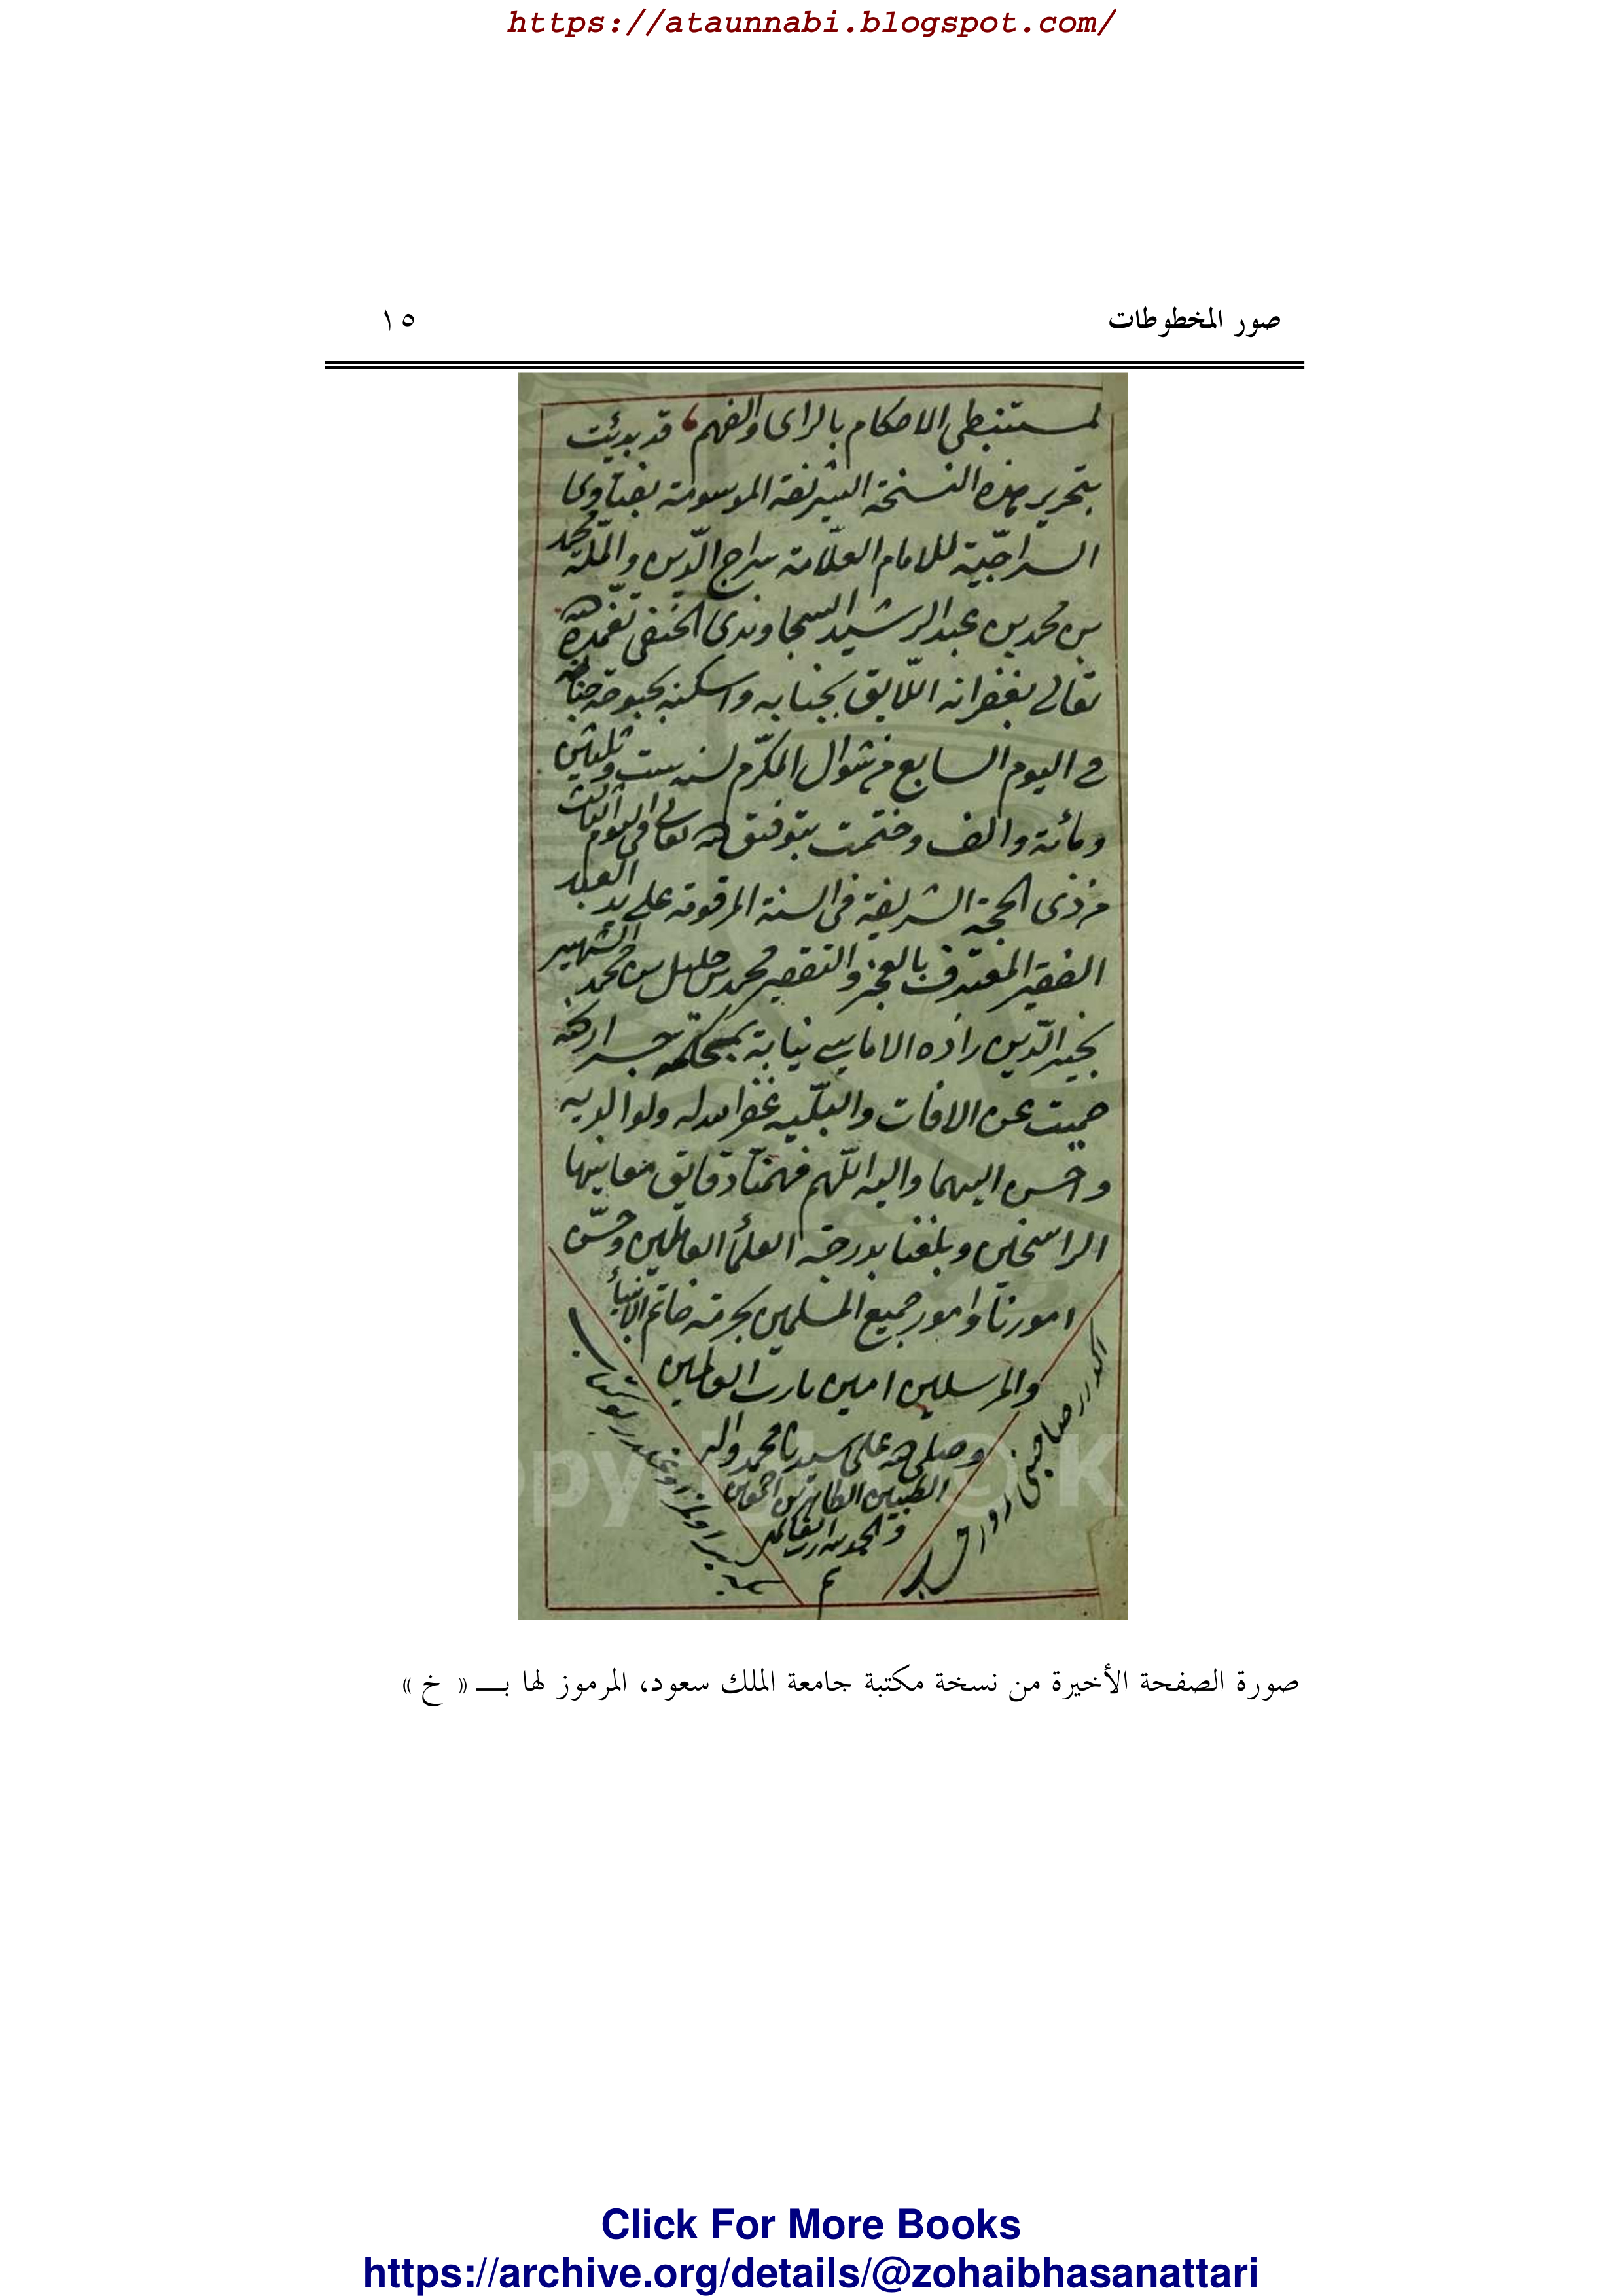 https://ataunnabi.blogspot.com/
صور المخطوطات
١٥
لمستنبطى الاحكام بالراى والفهم قد بديت
بتحرير هذه النسخة الشريفة الموسومة بفتاوى
السراجية للامام العلامة سراج الدين والملة محمد
بن محمد بن عبد الرشيد السجاوندى الحنفى تغمده الله
تعالى بغفرانه اللايق بجنابه واسكنه بحبوحة جنانه
فى اليوم السابع من شوال المكرم لسنه ست وثلثين
ومائة والف وختمت بتوفيق الله تعالى فى اليوم الثالث
من ذى الحجة الشريفة فى السنة المرقومة على يد العبد
الفقير المعترف بالعجز والتقصير محمد بن خليل بن محمد الشهير
زاده الاماسى نيابة بمحكمه
حميت عن الافات والبليه غفر الله له ولوالديه
واحسن اليهما واليه اللهم فهمنا دقايق معانيها
الراسخين وبلغنا بدرجة العلماء العالمين وحسن
امورنا وامور جميع المسلمين بحرمة خاتم الانبياء
والمرسلين امين يا رب العالمين
وصلى الله على سيدنا محمد واله
الطيبين الطاهرين اجمعين
والحمد لله رب العالمين
تم
صورة الصفحة الأخيرة من نسخة مكتبة جامعة الملك سعود، المرموز لها بـــ « خ »
Click For More Books
https://archive.org/details/@zohaibhasanattari